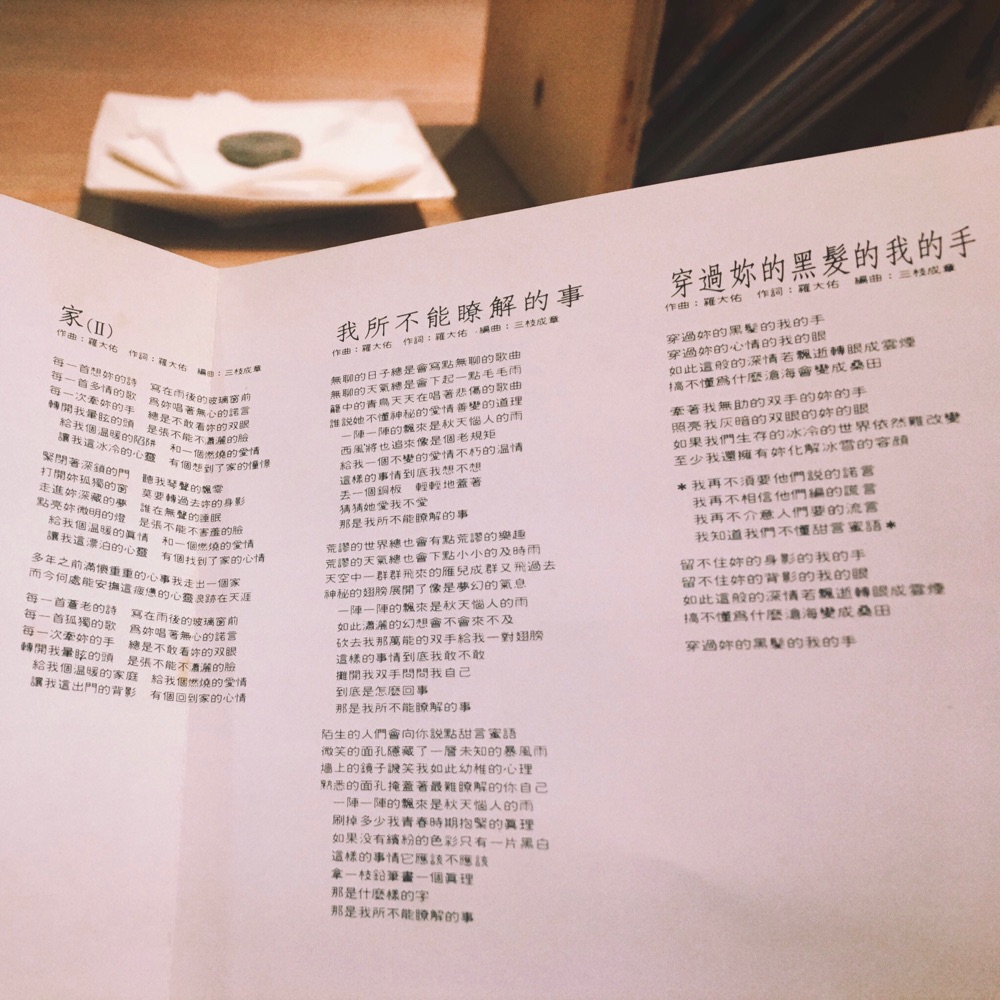 家(II)
作曲：羅大佑　作詞：羅大佑　編曲：三枝成章
每一首想妳的詩　寫在雨後的玻璃窗前
每一首多情的歌　爲妳唱著無心的諾言
每一次牽妳的手　總是不敢看妳的双眼
轉開我暈眩的頭　是張不能不濃灑的臉
給我個溫暖的陷阱　和一個燃燒的愛情
讓我這冰冷的心靈　有個想到了家的憧憬
緊閉著深鎖的門　聽我琴聲的飄零
打開妳孤獨的窗　莫要轉過去妳的身影
走進妳深藏的夢　誰在無聲的睡眠
點亮妳微明的燈　是張不能不害羞的臉
給我個溫暖的真情　和一個燃燒的愛情
讓我這漂泊的心靈　有個找到了家的心情
多年之前滿懷重重的心事我走出一個家
而今何處能安撫這疲憊的心靈浪跡在天涯
每一首蒼老的詩　寫在雨後的玻璃窗前
每一首孤獨的歌　爲妳唱著無心的諾言
每一次牽妳的手　總是不敢看妳的双眼
轉開我暈眩的頭　是張不能不瀟灑的臉
給我個溫暖的家庭　給我個燃燒的愛情
讓我這出門的背影　有個回到家的心情
我所不能瞭解的事
作曲：羅大佑　作詞：羅大佑　編曲：三枝成章
無聊的日子總是會寫點無聊的歌曲
無聊的天氣總是會下起一點毛毛雨
籠中的青鳥天天在唱著悲傷的歌曲
誰說她不懂神秘的愛情善變的道理
一陣一陣的飄來是秋天惱人的雨
西風將也追來像是個老規矩
給我一個不變的愛情不朽的溫情
這樣的事情到底我想不想
丟一個銅板　輕輕地蓋著
猜猜她愛我不愛
那是我所不能瞭解的事
荒謬的世界總也會有點荒謬的樂趣
荒謬的天氣總也會下點小小的及時雨
天空中一群群飛來的雁兒成群又飛過去
神秘的翅膀展開了像是夢幻的氣息
一陣一陣的飄來是秋天惱人的雨
如此瀟灑的幻想會不會來不及
砍去我那萬能的双手給我一對翅膀
這樣的事情到底我敢不敢
攤開我双手問問我自己
到底是怎麼回事
那是我所不能瞭解的事
陌生的人們會向你說點甜言蜜語
微笑的面孔隱藏了一層未知的暴風雨
墻上的鏡子譏笑我如此幼稚的心理
熟悉的面孔掩蓋著最難瞭解的你自己
一陣一陣的飄來是秋天惱人的雨
刷掉多少我青春時期抱緊的眞理
如果没有繽紛的色彩只有一片黑白
這樣的事情它應該不應該
拿一枝鉛筆畫一個眞理
那是什麼樣的字
那是我所不能瞭解的事
穿過妳的黑髮的我的手
作曲：羅大佑　作詞：羅大佑　編曲：三枝成章
穿過妳的黑髮的我的手
穿過妳的心情的我的眼
如此這般的深情若飄逝轉眼成雲煙
搞不懂爲什麼滄海會變成桑田
牽著我無助的双手的妳的手
照亮我灰暗的双眼的妳的眼
如果我們生存的冰冷的世界依然難改變
至少我還擁有妳化解冰雪的容顏
＊我再不須要他們說的諾言
我再不相信他們編的謊言
我再不介意人們要的流言
我知道我們不懂甜言蜜語＊
留不住妳的身影的我的手
留不住妳的背影的我的眼
如此這般的深情若飄逝轉眼成雲煙
搞不懂爲什麼滄海變成桑田
穿過妳的黑髮的我的手